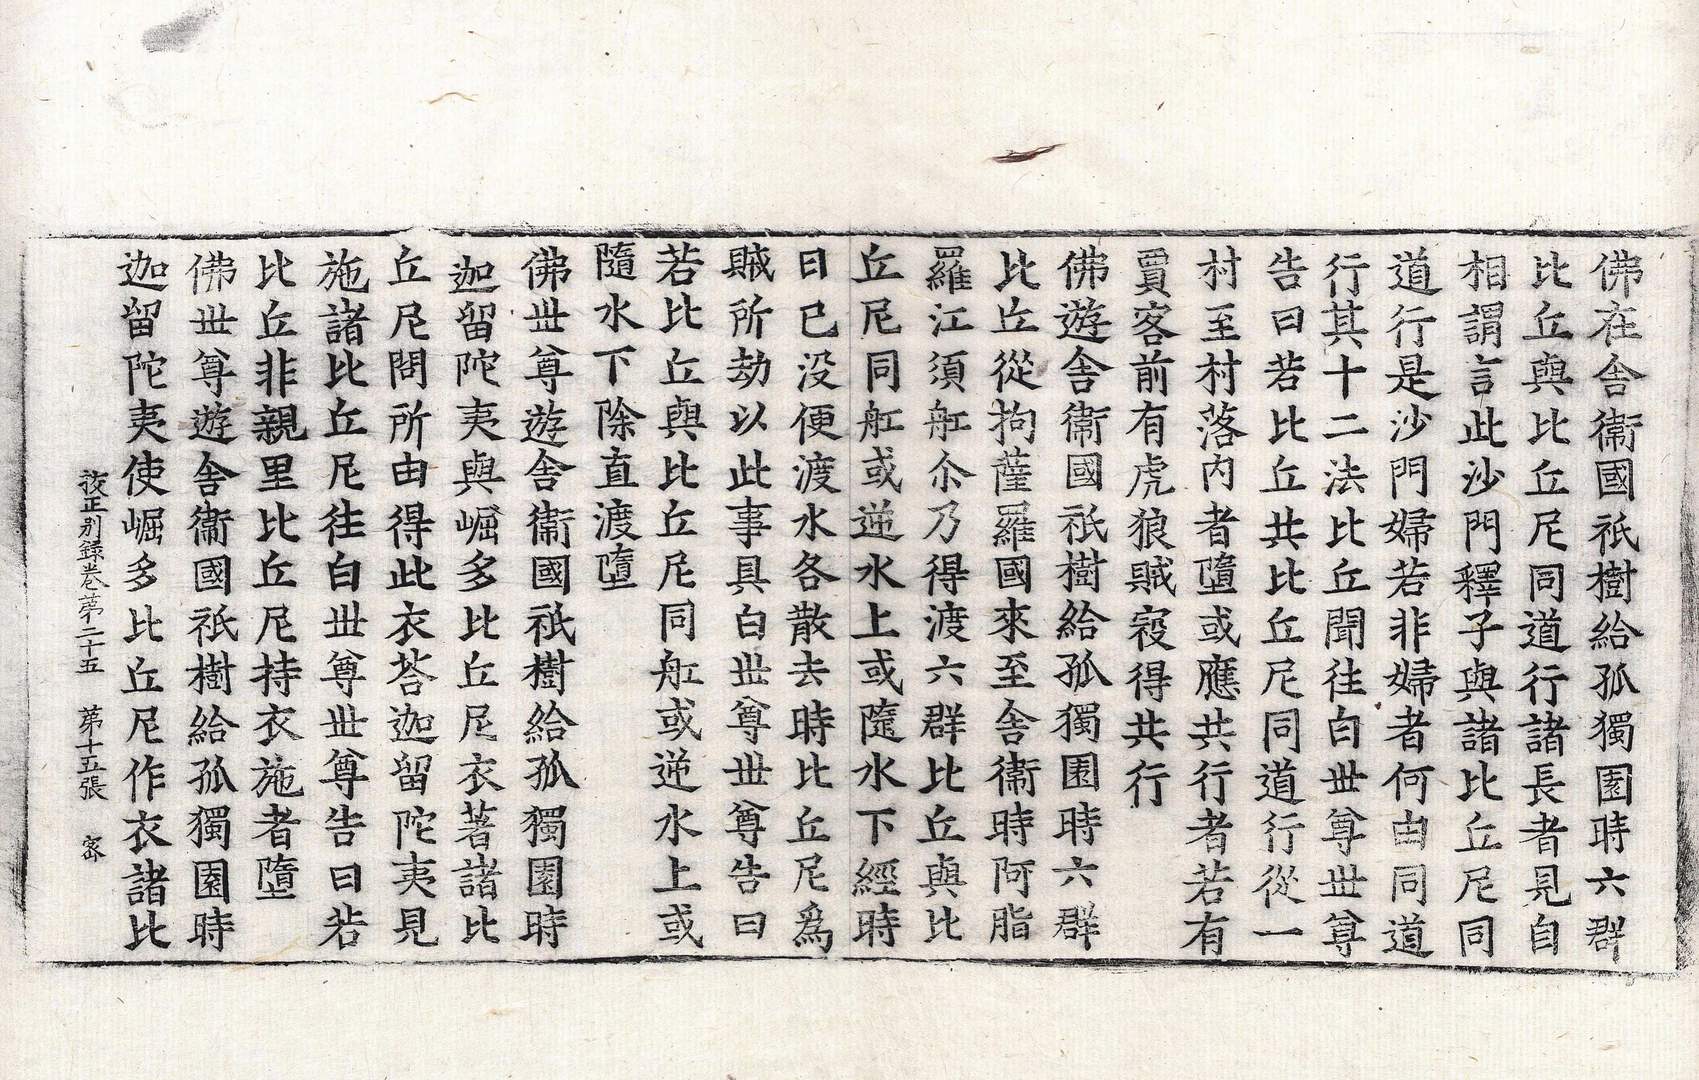 佛在舍衛國祇樹給孤獨園時六群
比丘與比丘尼同道行諸長者見自
相謂言此沙門釋子與諸比丘尼同
道行是沙門婦若非婦者何由同道
行其十二法比丘聞往白世尊世尊
告曰若比丘共比丘尼同道行從一
村至村落內者墮或應共行者若有
賈客前有虎狼賊𡨥得共行
佛遊舍衛國祇樹給孤獨園時六群
比丘從拘薩羅國來至舍衛時阿脂
羅江須舡尒乃得渡六群比丘與比
丘尼同舡或逆水上或隨水下經時
日已没便渡水各散去時比丘尼爲
賊所劫以此事具白世尊世尊告曰
若比丘與比丘尼同舡或逆水上或
隨水下除直渡墮
佛世尊遊舍衛國祇樹給孤獨園時
迦留陀夷與崛多比丘尼衣著諸比
丘尼問所由得此衣荅迦留陀夷見
施諸比丘尼往白世尊世尊告曰若
比丘非親里比丘尼持衣施者墮
佛世尊遊舍衛國祇樹給孤獨園時
迦留陀夷使崛多比丘尼作衣諸比
挍正別錄卷第二十五　第十五張　密